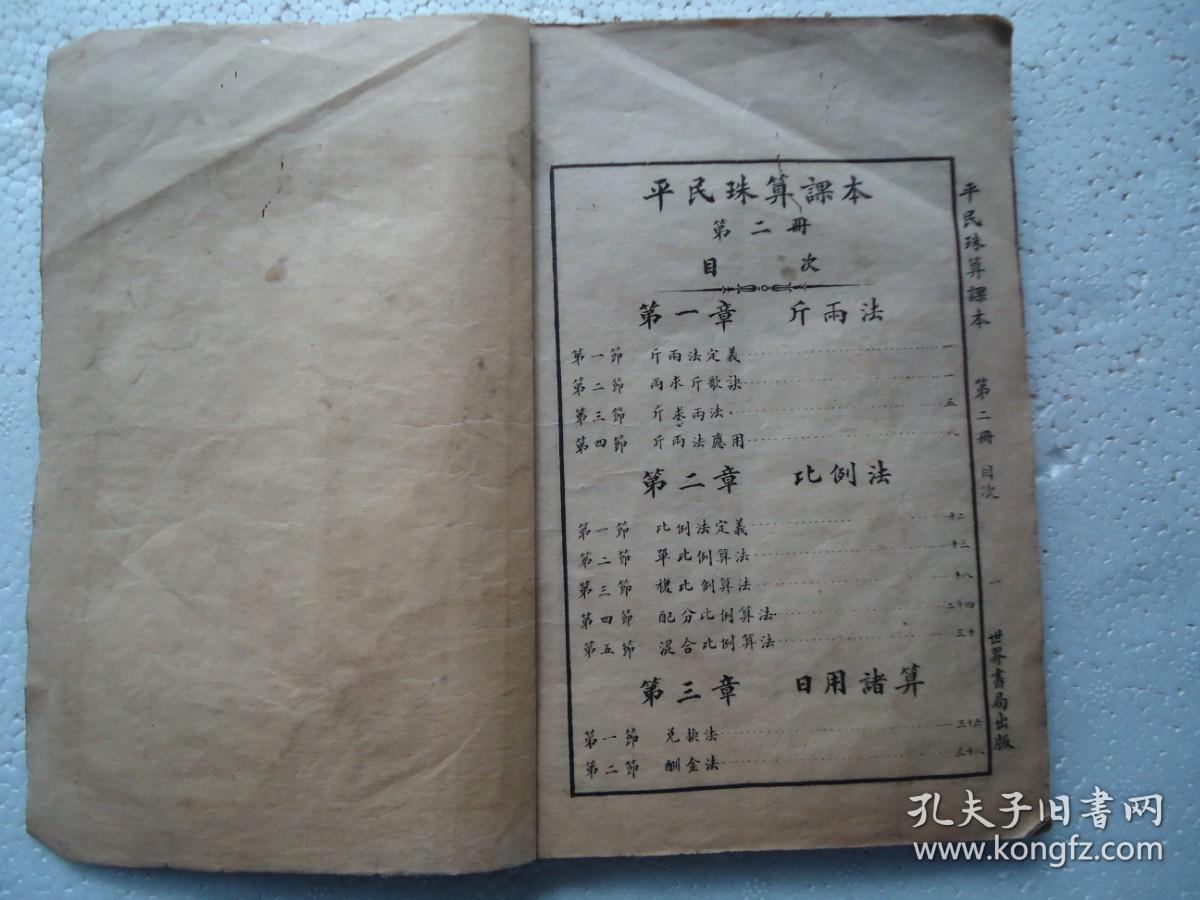 平民珠算課本
第二冊
目次
第一章 斤兩法
第一節 斤兩法定義 一
第二節 兩求斤歌訣 一
第三節 斤求兩法 五
第四節 斤兩法應用 八
第二章 比例法
第一節 比例法定義 十二
第二節 單比例算法 十三
第三節 複比例算法 十八
第四節 配分比例算法 二十四
第五節 混合比例算法 三十
第三章 日用諸算
第一節 兌換法 三十六
第二節 酬金法 三十八
平民珠算課本 第二冊 目次 一 世界書局出版
孔夫子旧书网
www.kongfz.com